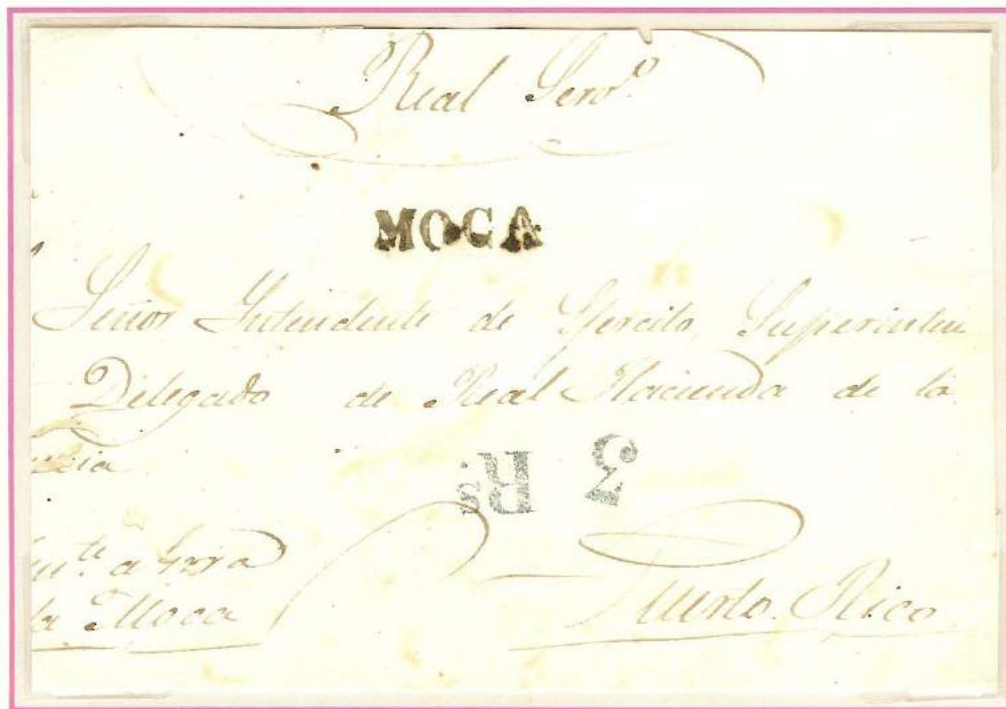 Real Servo.
MOCA
Señor Intendente de Ejercito, Superinten
Delegado de Real Hacienda de la
ncia
3 Rs
te. a Grra
la Moca
Puerto Rico